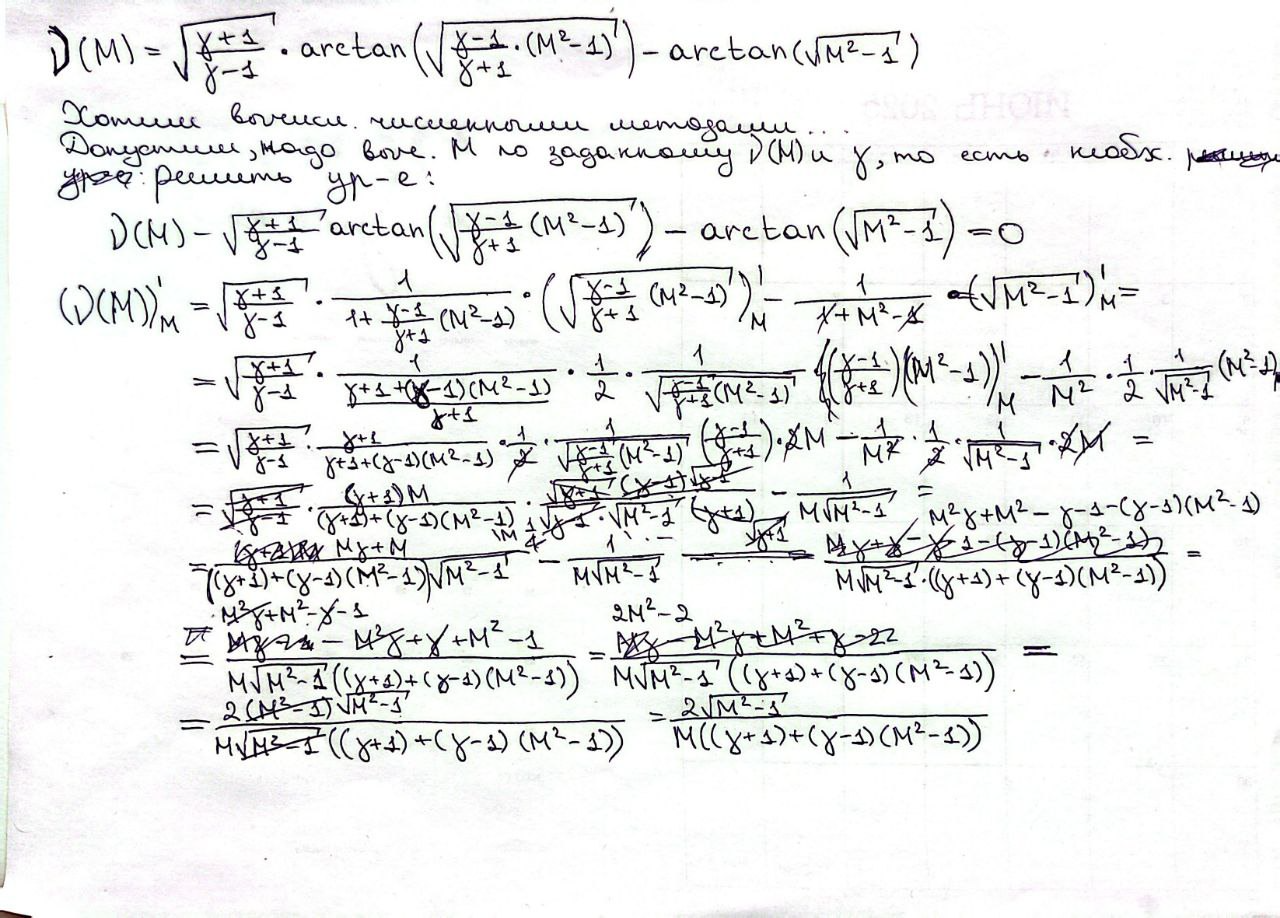 ν(M) = √((γ+1)/(γ−1)) · arctan(√((γ−1)/(γ+1) · (M²−1))) − arctan(√(M²−1))
Хотим вычисл. численными методами...
Допустим, надо выч. M по заданному ν(M) и γ, то есть необх.
решить ур-е:
ν(M) − √((γ+1)/(γ−1)) arctan(√((γ−1)/(γ+1) (M²−1))) − arctan(√(M²−1)) = 0
(ν(M))'_M = √((γ+1)/(γ−1)) · 1/(1+(γ−1)/(γ+1) (M²−1)) · (√((γ−1)/(γ+1) (M²−1)))'_M − 1/(1+M²−1) · (√(M²−1))'_M =
= √((γ+1)/(γ−1)) · 1/((γ+1+(γ−1)(M²−1))/(γ+1)) · 1/2 · 1/√((γ−1)/(γ+1) (M²−1)) · ((γ−1)/(γ+1))(M²−1))'_M − 1/M² · 1/2 · 1/√(M²−1) (M²−1)
= √((γ+1)/(γ−1)) · (γ+1)/(γ+1+(γ−1)(M²−1)) · 1/2 · 1/√((γ−1)/(γ+1) (M²−1)) ((γ−1)/(γ+1)) · 2M − 1/M² · 1/2 · 1/√(M²−1) · 2M =
= √(γ+1)/√(γ−1) · (γ+1)M/((γ+1)+(γ−1)(M²−1)) · √(γ+1) (γ−1)/(√(γ−1) · √(M²−1) (γ+1)) − 1/(M√(M²−1)) =
= (Mγ+M)/(((γ+1)+(γ−1)(M²−1))√(M²−1)) − 1/(M√(M²−1)) = (M²γ+M²−γ−1−(γ−1)(M²−1))/(M√(M²−1) · ((γ+1)+(γ−1)(M²−1))) =
= (M²γ+M²−γ−1 − M²γ+γ+M²−1)/(M√(M²−1) ((γ+1)+(γ−1)(M²−1))) = (2M²−2)/(M√(M²−1) ((γ+1)+(γ−1)(M²−1))) =
= 2(M²−1)√(M²−1)/(M√(M²−1) ((γ+1)+(γ−1)(M²−1))) = 2√(M²−1)/(M((γ+1)+(γ−1)(M²−1)))